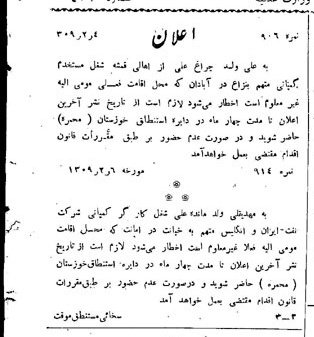 نمره ۹۰۶ اعلان ۴ر۲ر۳۰۹
به علی ولد چراغ علی از اهالی قمشه شغل مستخدم
کمپانی متهم بنزاع در آبادان که محل اقامت فعلی مومی الیه
غیر معلوم است اخطار می‌شود لازم است از تاریخ نشر آخرین
اعلان تا مدت چهار ماه در دایره استنطاق خوزستان (محمره)
حاضر شوید و در صورت عدم حضور بر طبق مقررات قانون
اقدام مقتضی بعمل خواهدآمد
نمره ۹۱۴ مورخه ۶ر۲ر۱۳۰۹
به مهدیقلی ولد مانده علی شغل کارگر کمپانی شرکت
نفت-ایران و انگلیس متهم به خیانت در امانت که محل اقامت
مومی الیه فعلا غیرمعلوم است اخطار می‌شود لازم است ازتاریخ
نشر آخرین اعلان تا مدت چهار ماه در دایره استنطاق خوزستان
(محمره) حاضر شوید و درصورت عدم حضور بر طبق مقررات
قانون اقدام مقتضی بعمل خواهد آمد
۳—۳ مستنطق موقت